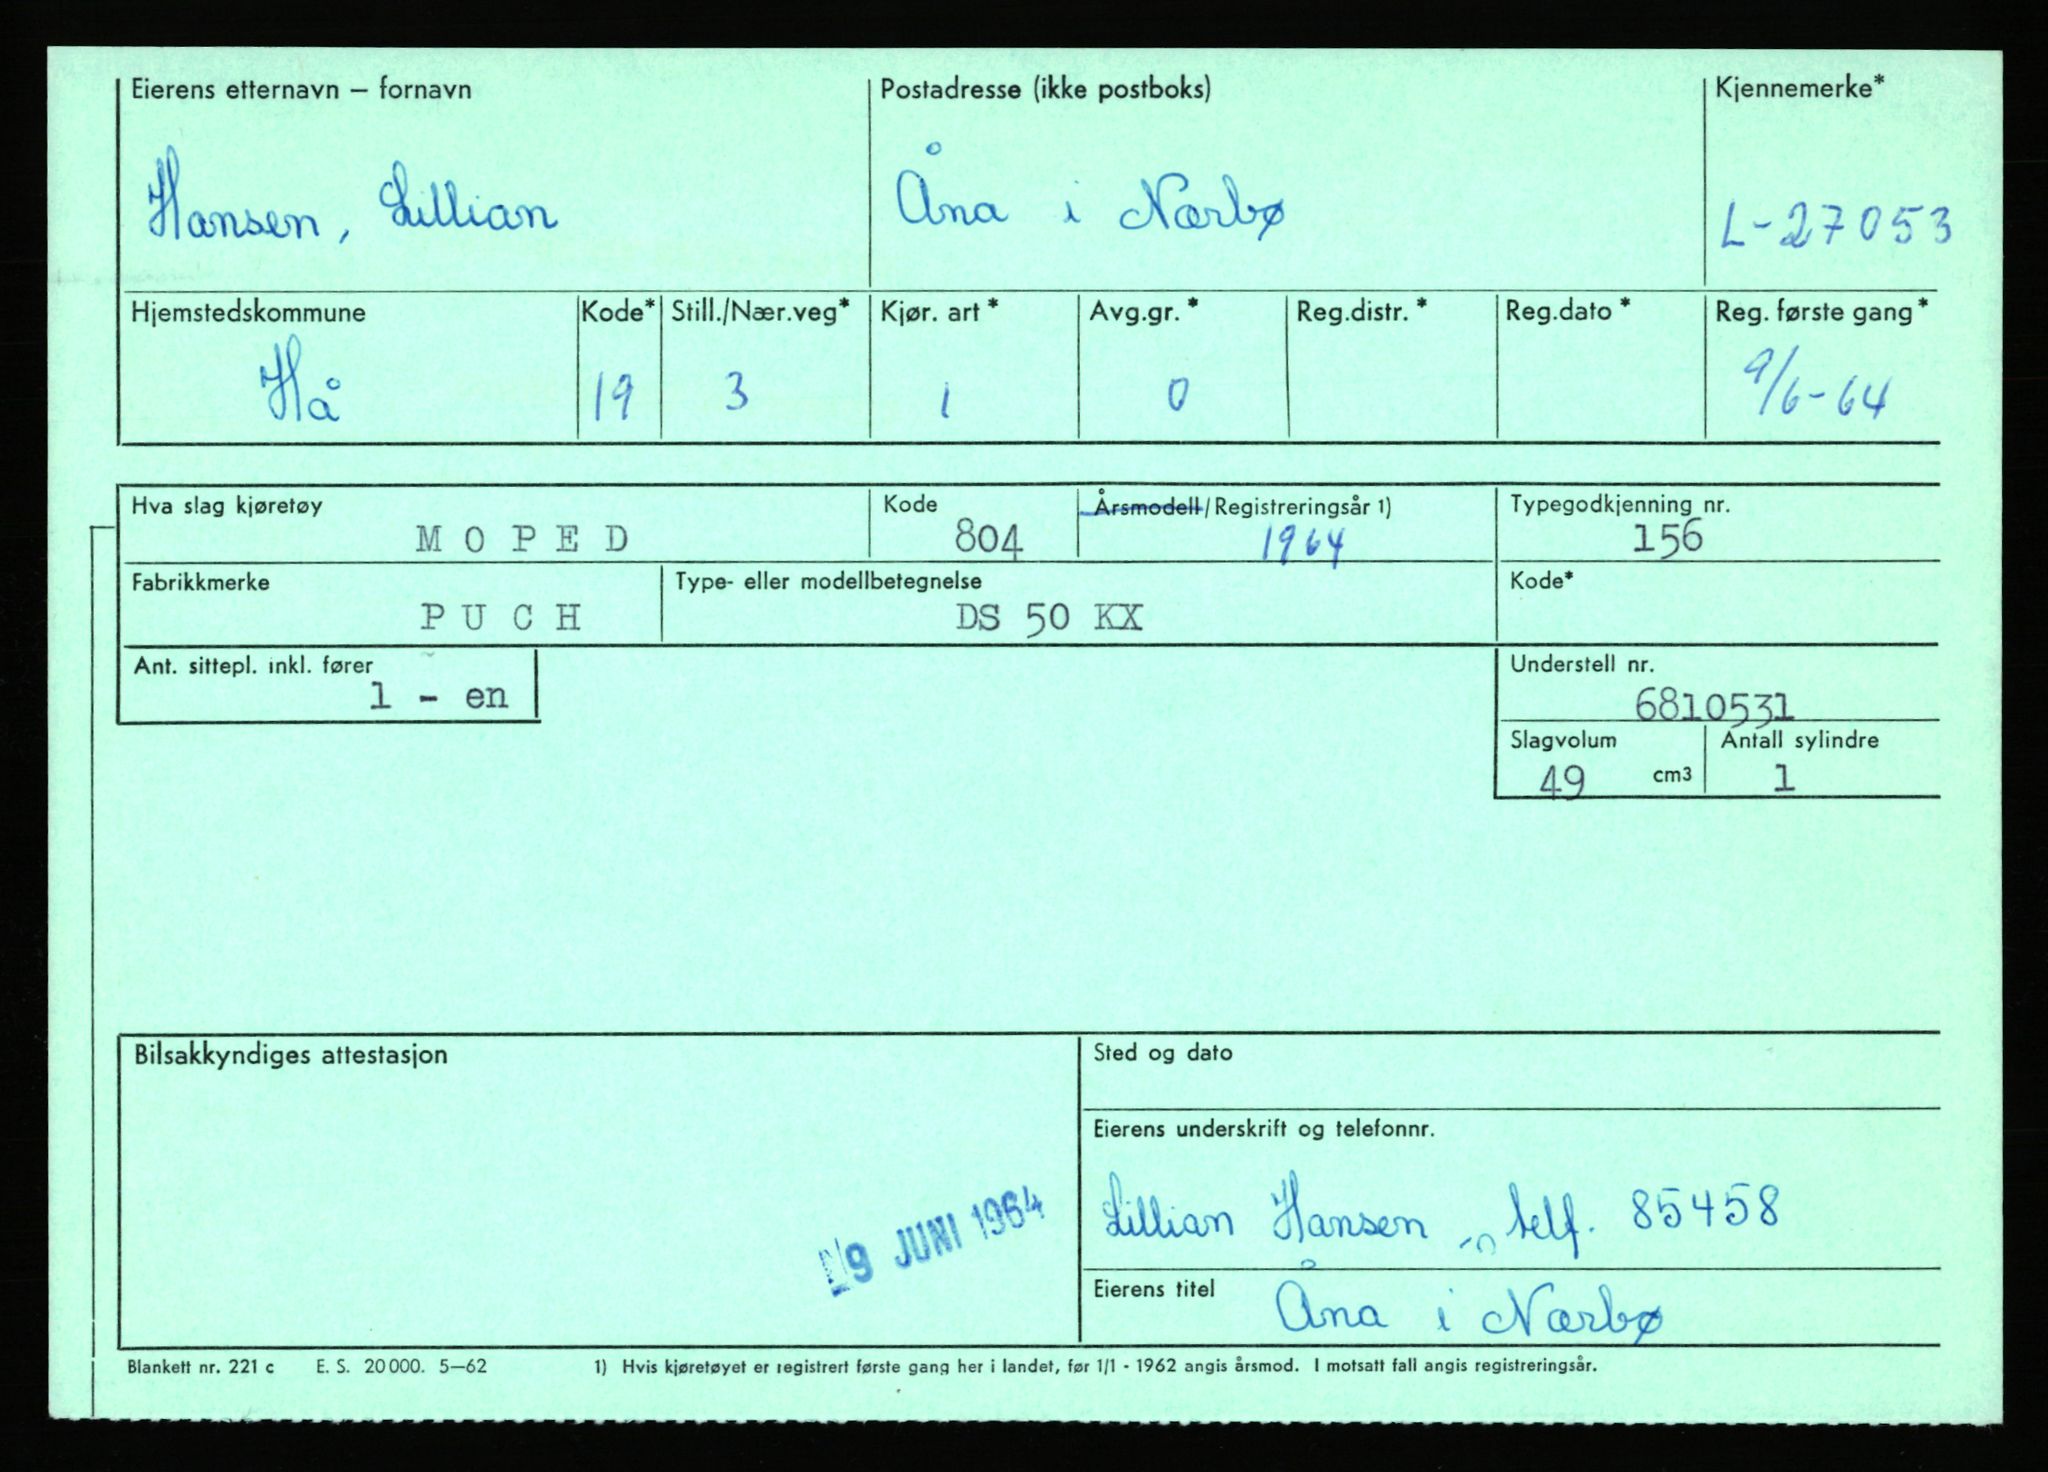 Eierens etternavn – fornavn
Postadresse (ikke postboks)
Kjennemerke*
Hansen, Lillian
Åna i Nærbø
L-27053
Hjemstedskommune
Kode*
Still./Nær.veg*
Kjør. art*
Avg.gr.*
Reg.distr.*
Reg.dato*
Reg. første gang*
Hå
19
3
1
0
9/6-64
Hva slag kjøretøy
Kode
Årsmodell/Registreringsår 1)
Typegodkjenning nr.
MOPED
804
1964
156
Fabrikkmerke
Type- eller modellbetegnelse
Kode*
PUCH
DS 50 KX
Ant. sittepl. inkl. fører
Understell nr.
1 - en
6810531
Slagvolum
Antall sylindre
49 cm3
1
Bilsakkyndiges attestasjon
Sted og dato
Eierens underskrift og telefonnr.
9 JUNI 1964
Lillian Hansen telf. 85458
Eierens titel
Åna i Nærbø
Blankett nr. 221 c E. S. 20 000. 5–62 1) Hvis kjøretøyet er registrert første gang her i landet, før 1/1 - 1962 angis årsmod. I motsatt fall angis registreringsår.